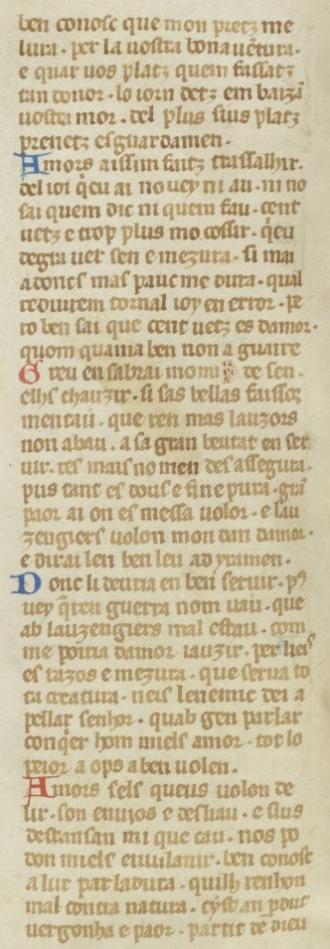 ben conosc que mon pretz me
lura · per la vostra bona uētura ·
e quar uos platz quem fassatz
tan donor · lo iorn detz em baizā
vostra mor · del plus sius platz
prenetz esguardamen ·
Amors aissim faitz trassalhir ·
del ioi q̄eu ai no vey ni au · ni no
sai quem dic ni quem fau · cent
uetz e trop plus mo cossir · q̄eu
degra uer sen e mezura · si mai
adoncs mas pauc me dura · qual
reduirem tornal ioy en error · pe
ro ben sai que cent uetz es damor ·
quom quama ben non a guaire
Greu en sabrai mo mi de sen ·
elhs chauzir · si sas bellas faissos
mentau · que ren mas lauzors
non abau · a sa gran beutat en ser
uir · res mais no men desassegura ·
pus tant es douse fine pura · grā
paor ai on es messa volor · e lau
zengiers volon mon dan damor ·
e dirai len ben leu ad yramen ·
Donc li deuria en ben seruir · p9
uey q̄ren guerra nom uau · que
ab lauzengiers mal estau · com
me poiria damor iauzir · per lieis
es razos e mezura · que serua to
ta creatura · neis lenemic dei a
pellar senhor · quab gen parlar
conq̄er hom miels amor · tot lo
peior a ops aben volen ·
Amors sels queus volon de
lir · son enuios e desliau · e sius
destansan mi que cau · nos po
don miels enuilanir · ben conosc
a lur parladura · quilh renhon
mal contra natura · cyst an pour
uergonha e paor · partit de dieu